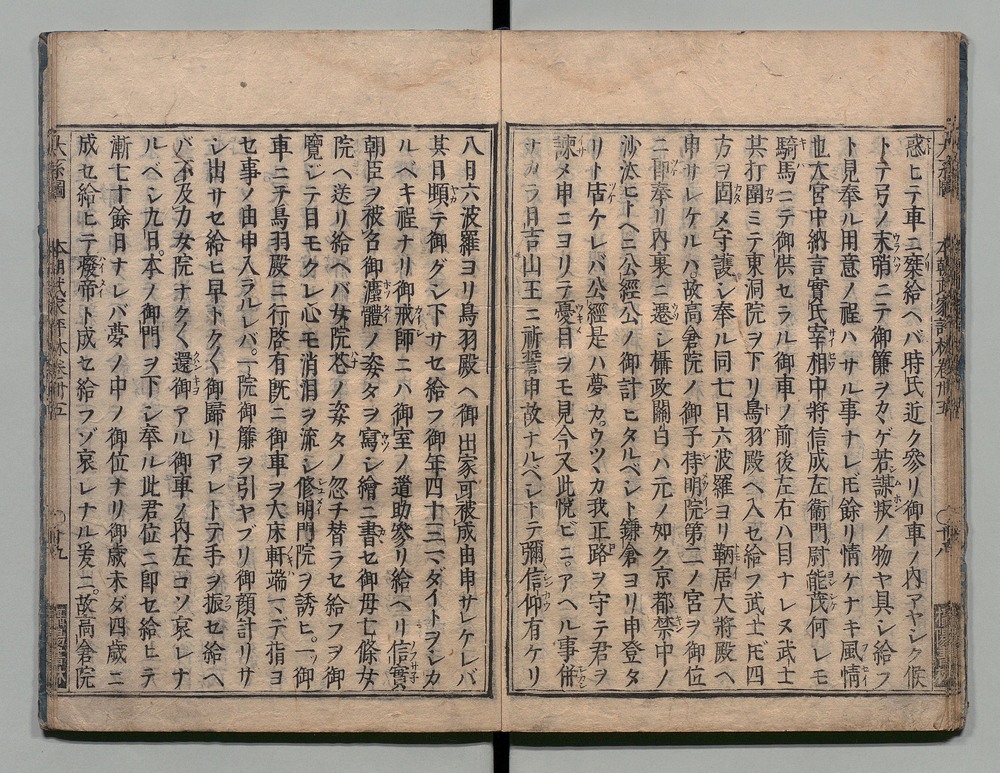 惑ヒテ車ニ乗給ヘバ時氏近ク參リ御車ノ內アヤシク候
トテ弓ノ末弭ニテ御簾ヲカヽゲ若謀叛ノ物ヤ具シ給フ
ト見奉ル用意ノ程ハサル事ナレ𪜈餘リ情ケナキ風情
也大宮中納言實氏宰相中將信成左衛門尉能茂何レモ
騎馬ニテ御供セラル御車ノ前後左右ハ目ナレヌ武士
共打圍ミテ東洞院ヲ下リ鳥羽殿ヘ入セ給フ武士𪜈四
方ヲ固メ守護シ奉ル同七日六波羅ヨリ鞆居大將殿ヘ
申サレケルハ故高倉院ノ御子持明院第二ノ宮ヲ御位
ニ卽奉リ內裏ニ遷シ攝政關白ハ元ノ如ク京都禁中ノ
沙汰ヒトヘニ公經公ノ御計ヒタルベシト鎌倉ヨリ申登タ
リト告ケレバ公經是ハ夢カウツヽカ我正路ヲ守テ君ヲ
諫メ申ニヨリテ憂目ヲモ見今又此悅ビニアヘル事併
シカラ日吉山王ニ祈誓申故ナルベシトテ彌信仰有ケリ
八日六波羅ヨリ鳥羽殿ヘ御出家可被成由申サレケレバ
其日頓テ御グシ下サセ給フ御年四十三マダイトヲシカ
ルベキ程ナリ御戒師ニハ御室ノ道助參リ給ヘリ信實
朝臣ヲ被名御法體ノ姿タヲ寫シ繪ニ書セ御母七條女
院ヘ送リ給ヘバ女院花ノ姿タノ忽チ替ラセ給フヲ御
覽ジテ目モクレ心モ消淚ヲ流シ修明門院ヲ誘ヒ一ツ御
車ニテ鳥羽殿ニ行啓有既ニ御車ヲ大床軒端マデ指ヨ
セ事ノ由申入ラルレバ一院御簾ヲ引ヤブリ御顏計リサ
シ出サセ給ヒ早トク〱御歸リアレトテ手ヲ振セ給ヘ
バ不及力女院ナク〱還御アル御車ノ內左コソ哀レナ
ルベシ九日本ノ御門ヲ下シ奉ル此君位ニ卽セ給ヒテ
漸七十餘日ナレバ夢ノ中ノ御位ナリ御歲未ダ四歲ニ
成セ給ヒテ廢帝ト成セ給フゾ哀レナル爰ニ故高倉院
本朝武家評林卷卅五
卅九